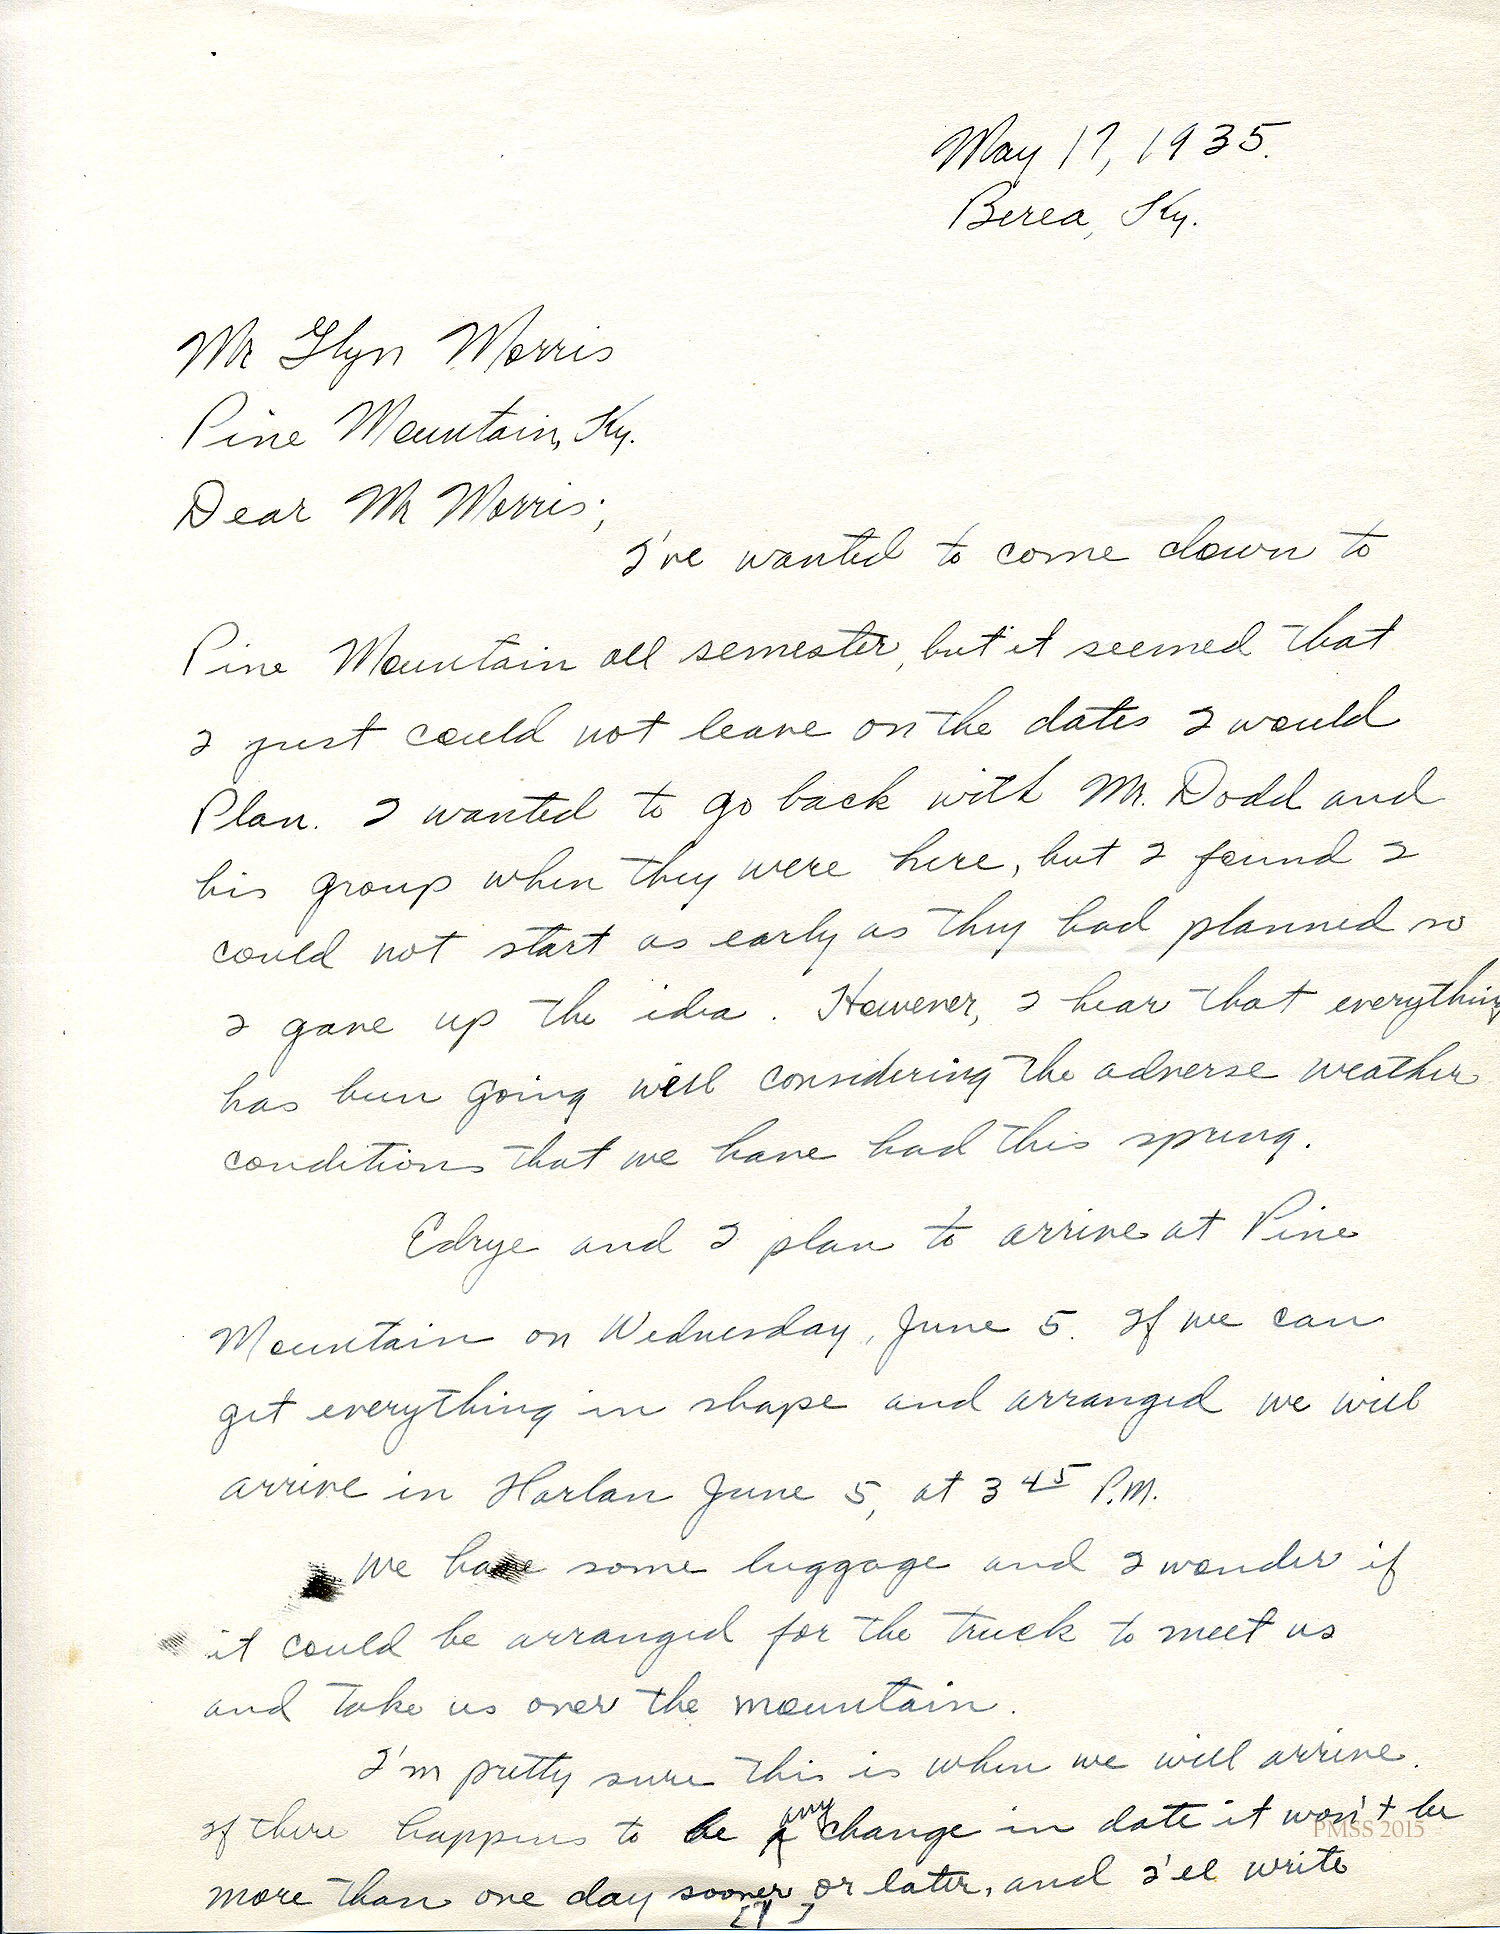 May 17, 1935.
Berea, Ky.
Mr Glyn Morris
Pine Mountain, Ky.
Dear Mr Morris;
I've wanted to come down to
Pine Mountain all semester, but it seemed that
I just could not leave on the dates I would
Plan. I wanted to go back with Mr. Dodd and
his group when they were here, but I found I
could not start as early as they had planned so
I gave up the idea. However, I hear that everything
has been going well considering the adverse weather
conditions that we have had this spring.
Edrye and I plan to arrive at Pine
Mountain on Wednesday, June 5. If we can
get everything in shape and arranged we will
arrive in Harlan June 5, at 3 45 P.M.
We have some luggage and I wonder if
it could be arranged for the truck to meet us
and take us over the mountain.
I'm pretty sure this is when we will arrive.
If there happens to be any change in date it won't be
more than one day sooner or later, and I'll write
[1]
PMSS 2015